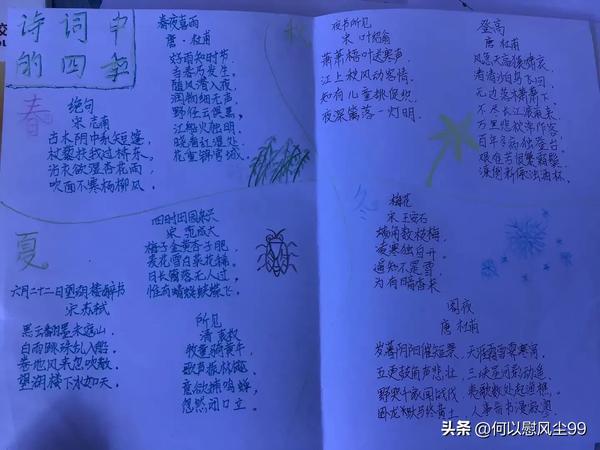 诗词中
的四季
春
绝句
宋 志南
古木阴中系短篷,
杖藜扶我过桥东。
沾衣欲湿杏花雨,
吹面不寒杨柳风。
春夜喜雨
唐·杜甫
好雨知时节,
当春乃发生。
随风潜入夜,
润物细无声。
野径云俱黑,
江船火独明。
晓看红湿处,
花重锦官城。
夏
六月二十二日望湖楼醉书
宋 苏轼
黑云翻墨未遮山,
白雨跳珠乱入船。
卷地风来忽吹散,
望湖楼下水如天。
四时田园杂兴
宋 范成大
梅子金黄杏子肥,
麦花雪白菜花稀。
日长篱落无人过,
惟有蜻蜓蛱蝶飞。
所见
清 袁枚
牧童骑黄牛,
歌声振林樾。
意欲捕鸣蝉,
忽然闭口立。
秋
夜书所见
宋 叶绍翁
萧萧梧叶送寒声,
江上秋风动客情。
知有儿童挑促织,
夜深篱落一灯明。
登高
唐 杜甫
风急天高猿啸哀,
渚清沙白鸟飞回。
无边落木萧萧下,
不尽长江滚滚来。
万里悲秋常作客,
百年多病独登台。
艰难苦恨繁霜鬓,
潦倒新停浊酒杯。
冬
梅花
宋 王安石
墙角数枝梅,
凌寒独自开。
遥知不是雪,
为有暗香来。
阁夜
唐 杜甫
岁暮阴阳催短景,天涯霜雪霁寒宵。
五更鼓角声悲壮,三峡星河影动摇。
野哭千家闻战伐,夷歌数处起渔樵。
卧龙跃马终黄土,人事音书漫寂寥。
头条 @何以慰风尘99